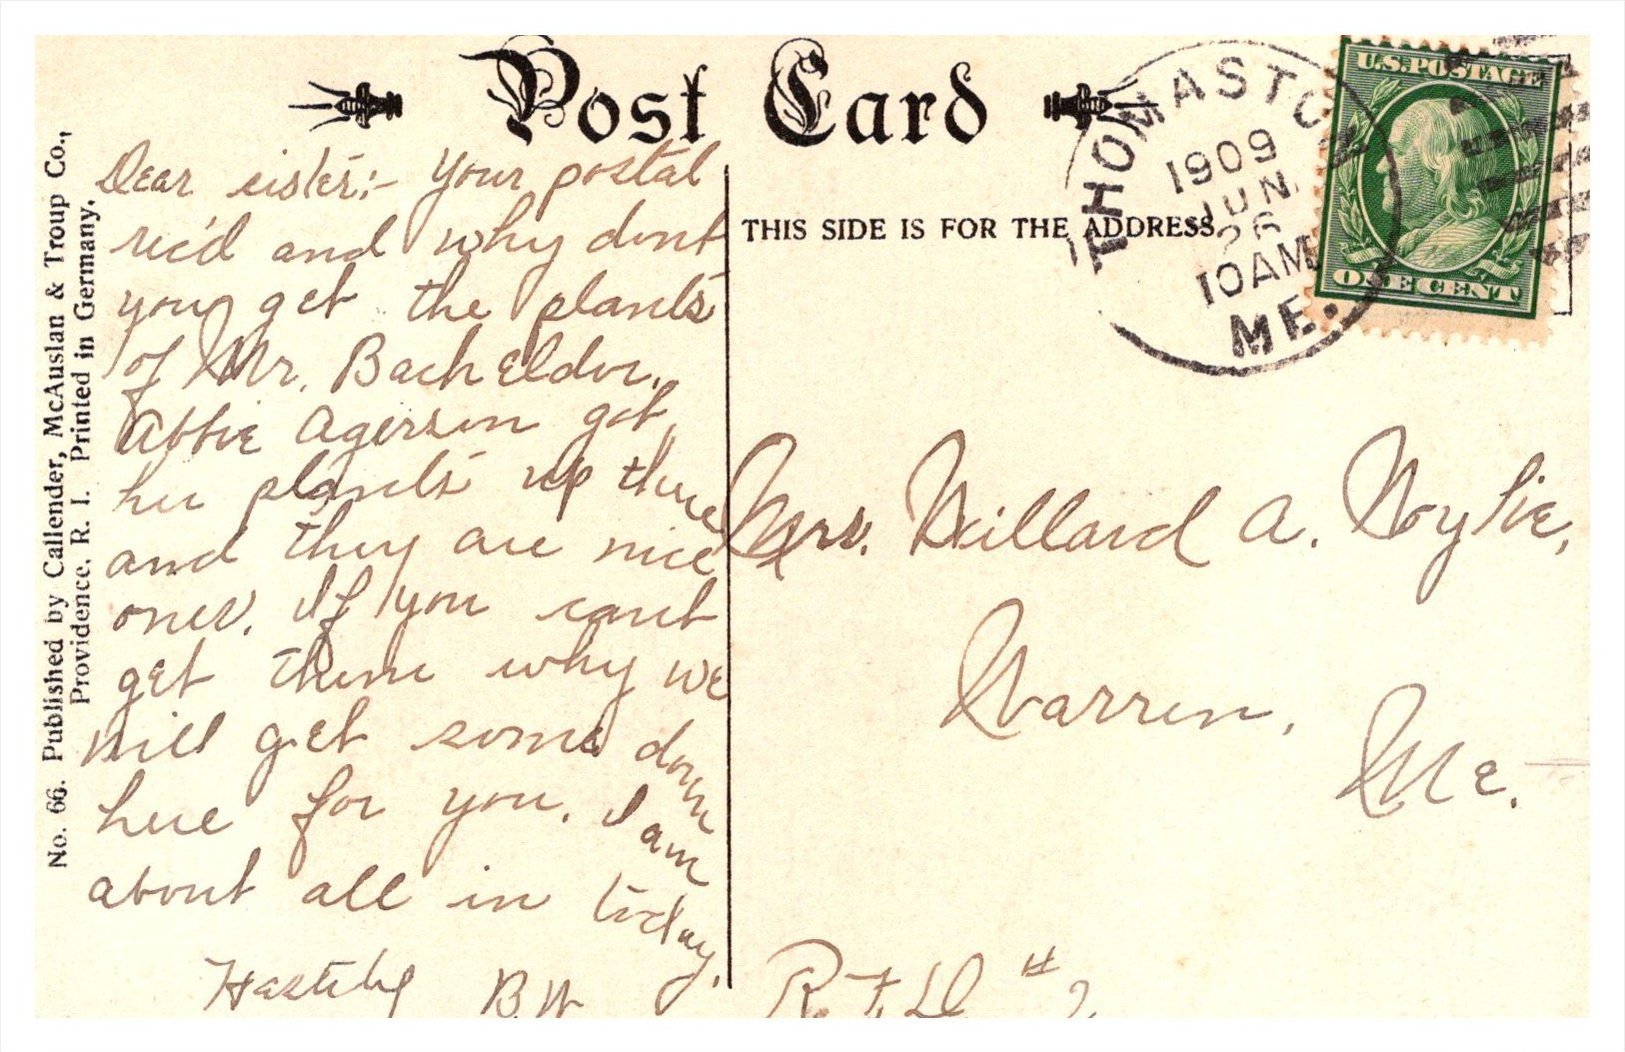 Post Card
THIS SIDE IS FOR THE ADDRESS.
No. 66. Published by Callender, McAuslan & Troup Co.,
Providence, R. I. Printed in Germany.
Dear sister:- Your postal
rec'd and why dont
you get the plants
of Mr. Bachelder.
Abbie got
her plants up there
and they are nice
ones. If you cant
get them why we
will get some down
here for you. I am
about all in today.
Hastily B.W
THOMASTON
1909
JUN
26
10AM
ME.
U.S.POSTAGE
ONE CENT
Mrs. Willard A. Wylie,
Warren,
Me.
R.F.D #2